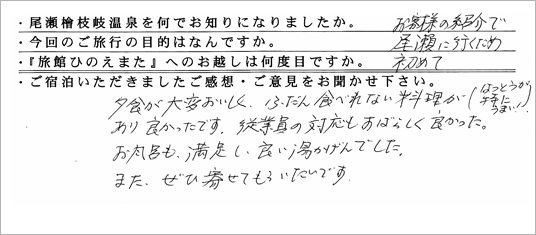 ・尾瀬檜枝岐温泉を何でお知りになりましたか。 お客様の紹介で
・今回のご旅行の目的はなんですか。 尾瀬に行くため
・『旅館ひのえまた』へのお越しは何度目ですか。 初めて
・ご宿泊いただきましたご感想・ご意見をお聞かせ下さい。
夕食が大変おいしく、ふだん食べれない料理が(はっとうが特にうまい!)
あり良かったです。従業員の対応もすばらしく良かった。
お風呂も、満足し、良い湯かげんでした。
また、ぜひ寄せてもらいたいです。